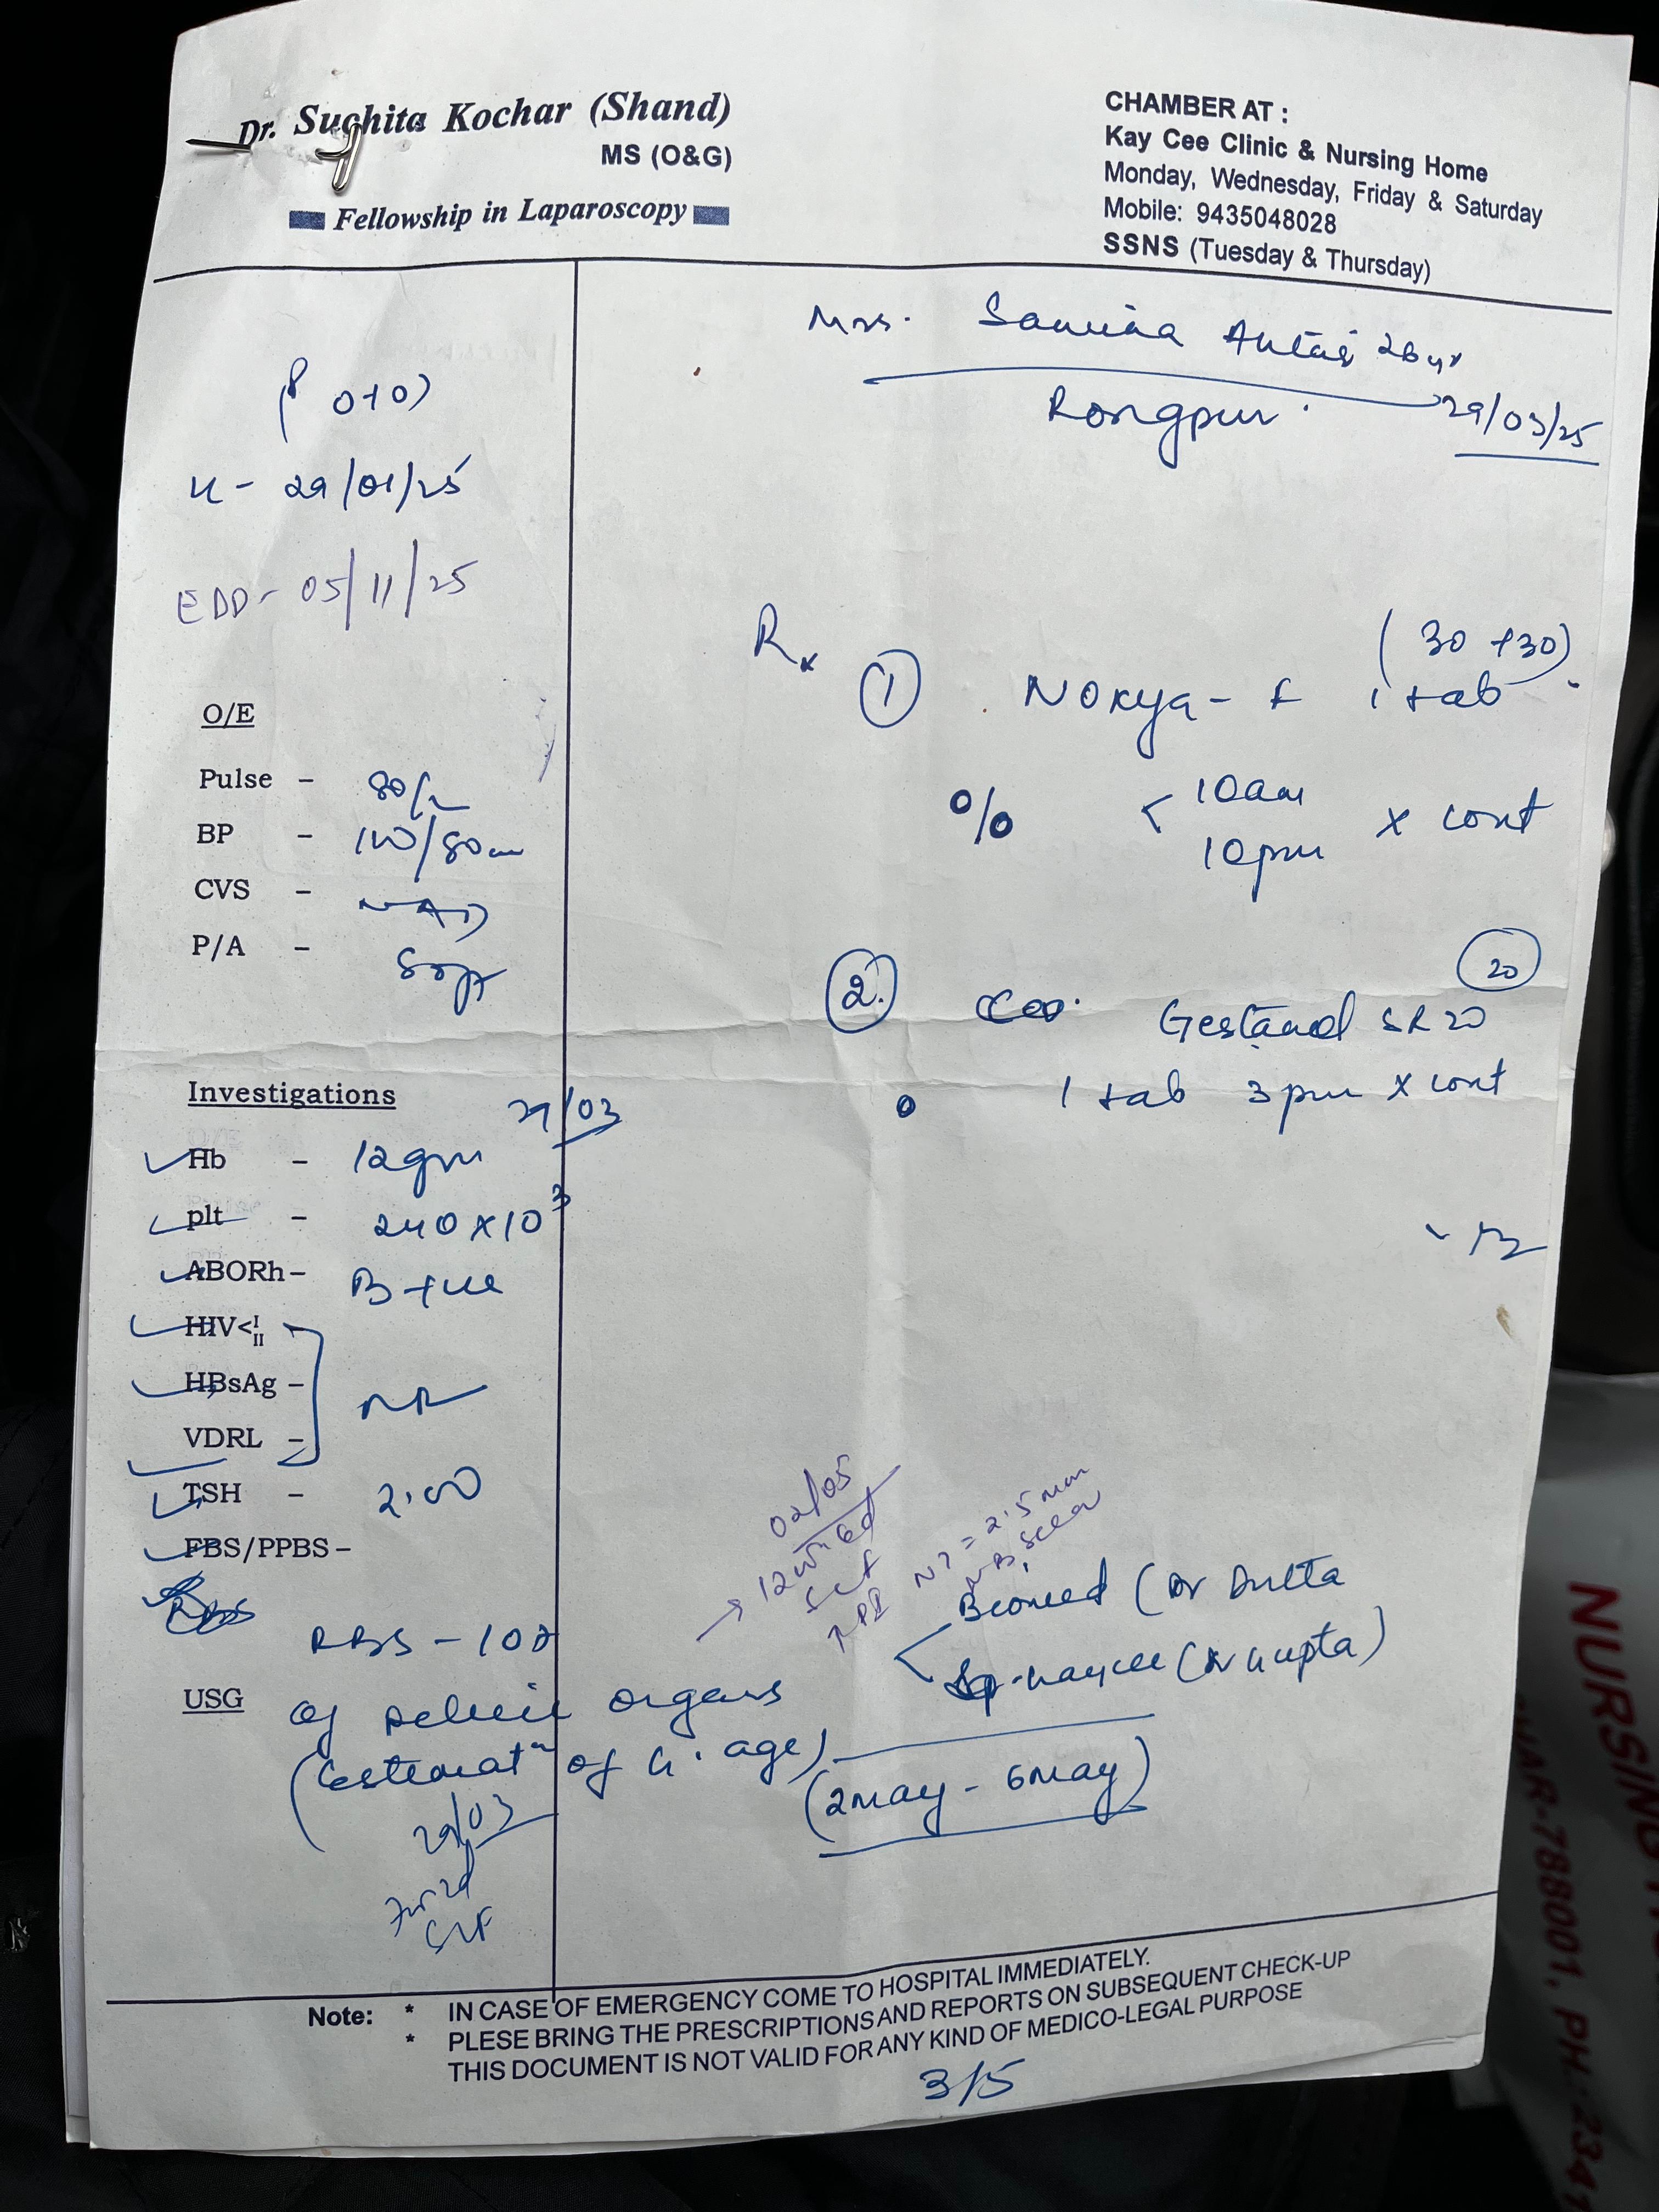 Dr. Suchita Kochar (Shand)
MS (O&G)
Fellowship in Laparoscopy
CHAMBER AT :
Kay Cee Clinic & Nursing Home
Monday, Wednesday, Friday & Saturday
Mobile: 9435048028
SSNS (Tuesday & Thursday)
Mrs.
Rongpur
29/03/25
P 0+0
29/01/25
EDD- 05/11/25
O/E
Pulse - 80/
BP - 110/80
CVS - NAD
P/A - Soft
Rx
(30 +30)
1 1 tab
< 10am
10pm x cont
20
2. SR 20
1 tab 3pm x cont
Investigations
Hb - 12gm
plt - 240 x 10³
ABORh - B +ve
HIV< I II
HBsAg - NR
VDRL -
TSH - 2.00
FBS/PPBS -
RBS -
USG of pelvic organs
(estimatn of G. age)
29/03
SLF
02/05
NT = 2.5 mm
(Dr Dutta
(Dr Gupta)
(2may - 6may)
Note: * IN CASE OF EMERGENCY COME TO HOSPITAL IMMEDIATELY.
* PLESE BRING THE PRESCRIPTIONS AND REPORTS ON SUBSEQUENT CHECK-UP
THIS DOCUMENT IS NOT VALID FOR ANY KIND OF MEDICO-LEGAL PURPOSE
3/5
NURSING
-788001, PH.: 234